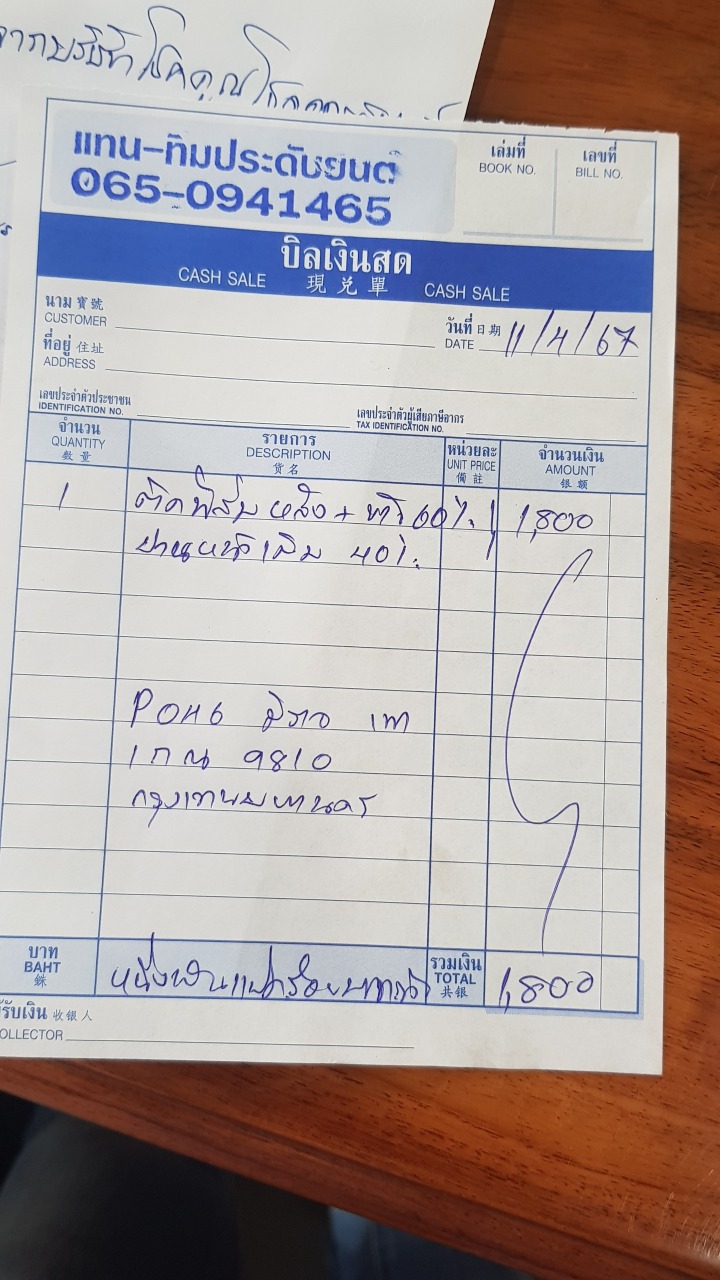 แทน-ทิมประดับยนต์
065-0941465
เล่มที่
BOOK NO.
เลขที่
BILL NO.
บิลเงินสด
CASH SALE 現兌單 CASH SALE
นาม 寶號
CUSTOMER
วันที่ 日期
DATE 11/4/67
ที่อยู่ 住址
ADDRESS
เลขประจำตัวประชาชน
IDENTIFICATION NO.
เลขประจำตัวผู้เสียภาษีอากร
TAX IDENTIFICATION NO.
จำนวน
QUANTITY
數量
รายการ
DESCRIPTION
貨名
หน่วยละ
UNIT PRICE
備註
จำนวนเงิน
AMOUNT
银额
1 ติดฟิล์ม หลัง + 60%. 1,800
บานหน้าเต็ม 40%.
เทา
1กณ 9810
กรุงเทพมหานคร
บาท
BAHT
銖
หนึ่งพันแปดร้อยบาทถ้วน
รวมเงิน
TOTAL
共银
1,800
รับเงิน 收银人
OLLECTOR